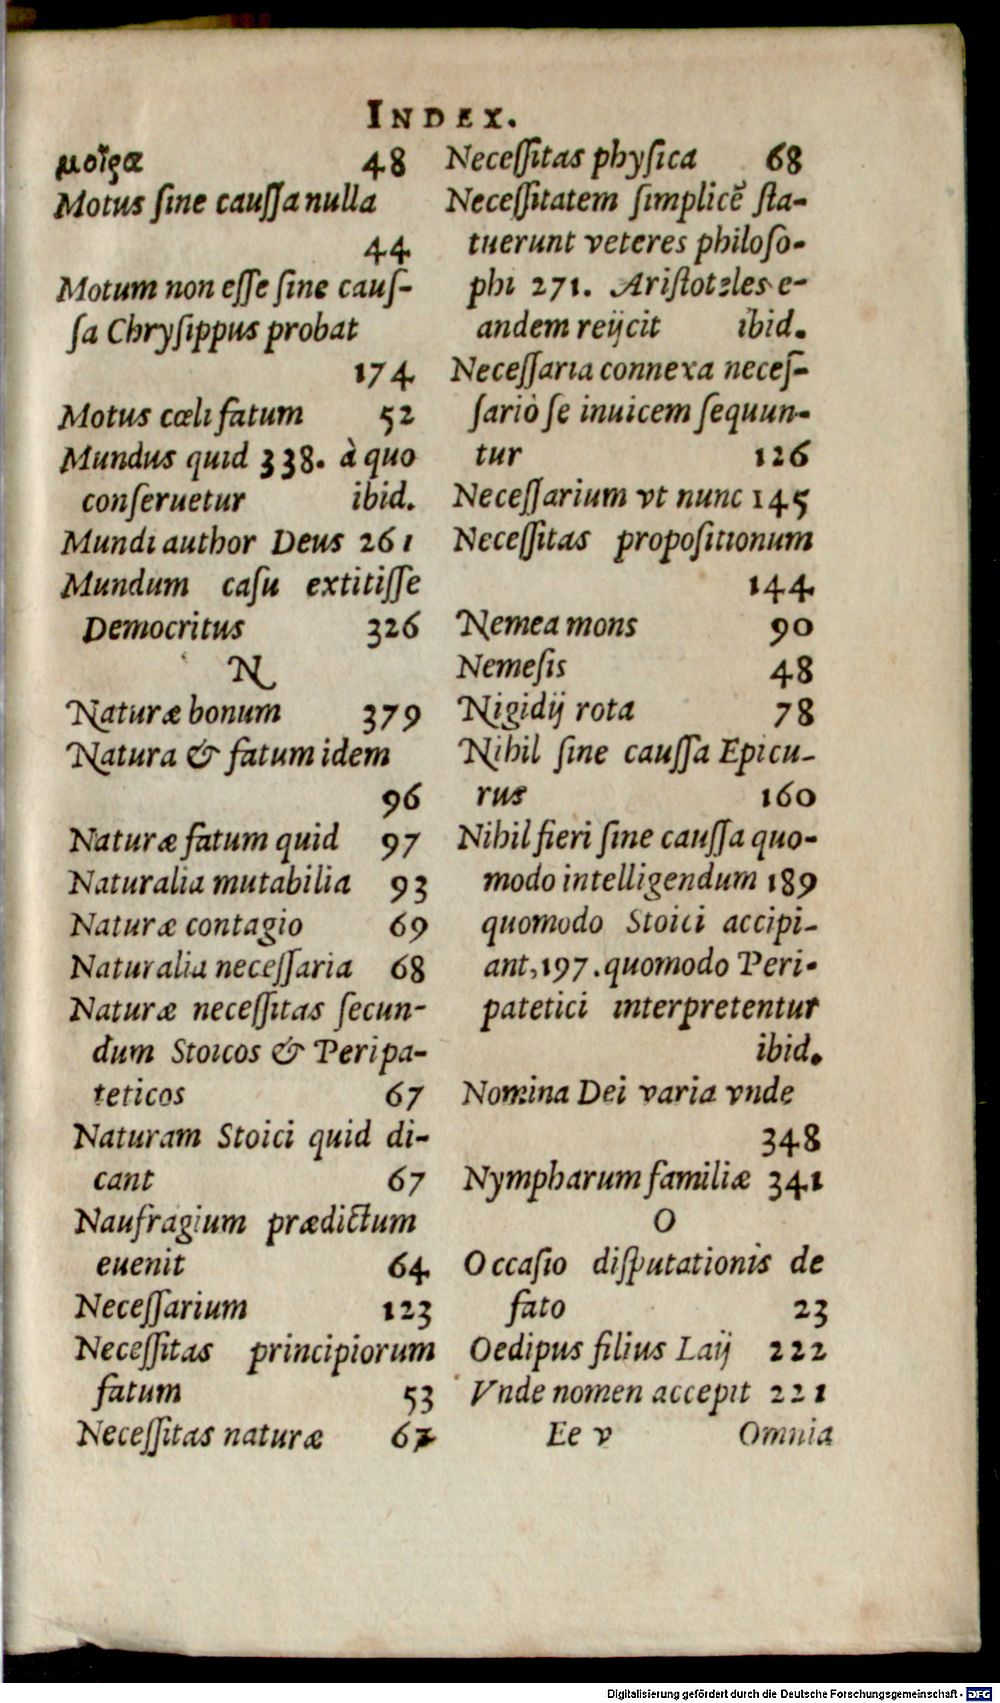 INDEX.
μοῖρα 48
Motus ſine cauſſa nulla
44
Motum non eſſe ſine cauſ-
ſa Chryſippus probat
174
Motus cœli fatum 52
Mundus quid 338. à quo
conſeruetur ibid.
Mundi author Deus 261
Mundum caſu extitiſſe
Democritus 326
N
Naturæ bonum 379
Natura & fatum idem
96
Naturæ fatum quid 97
Naturalia mutabilia 93
Naturæ contagio 69
Naturalia neceſſaria 68
Naturæ neceſſitas ſecun-
dum Stoicos & Peripa-
teticos 67
Naturam Stoici quid di-
cant 67
Naufragium prædictum
euenit 64
Neceſſarium 123
Neceſſitas principiorum
fatum 53
Neceſſitas naturæ 67
Neceſſitas phyſica 68
Neceſſitatem ſimplicẽ ſta-
tuerunt veteres philoſo-
phi 271. Ariſtoteles e-
andem reijcit ibid.
Neceſſaria connexa neceſ-
ſariò ſe inuicem ſequun-
tur 126
Neceſſarium vt nunc 145
Neceſſitas propoſitionum
144
Nemea mons 90
Nemeſis 48
Nigidij rota 78
Nihil ſine cauſſa Epicu-
rus 160
Nihil fieri ſine cauſſa quo-
modo intelligendum 189
quomodo Stoici accipi-
ant, 197. quomodo Peri-
patetici interpretentur
ibid.
Nomina Dei varia vnde
348
Nympharum familiæ 341
O
Occaſio diſputationis de
fato 23
Oedipus filius Laij 222
Vnde nomen accepit 221
Ee v Omnia
Digitalisierung gefördert durch die Deutsche Forschungsgemeinschaft - DFG